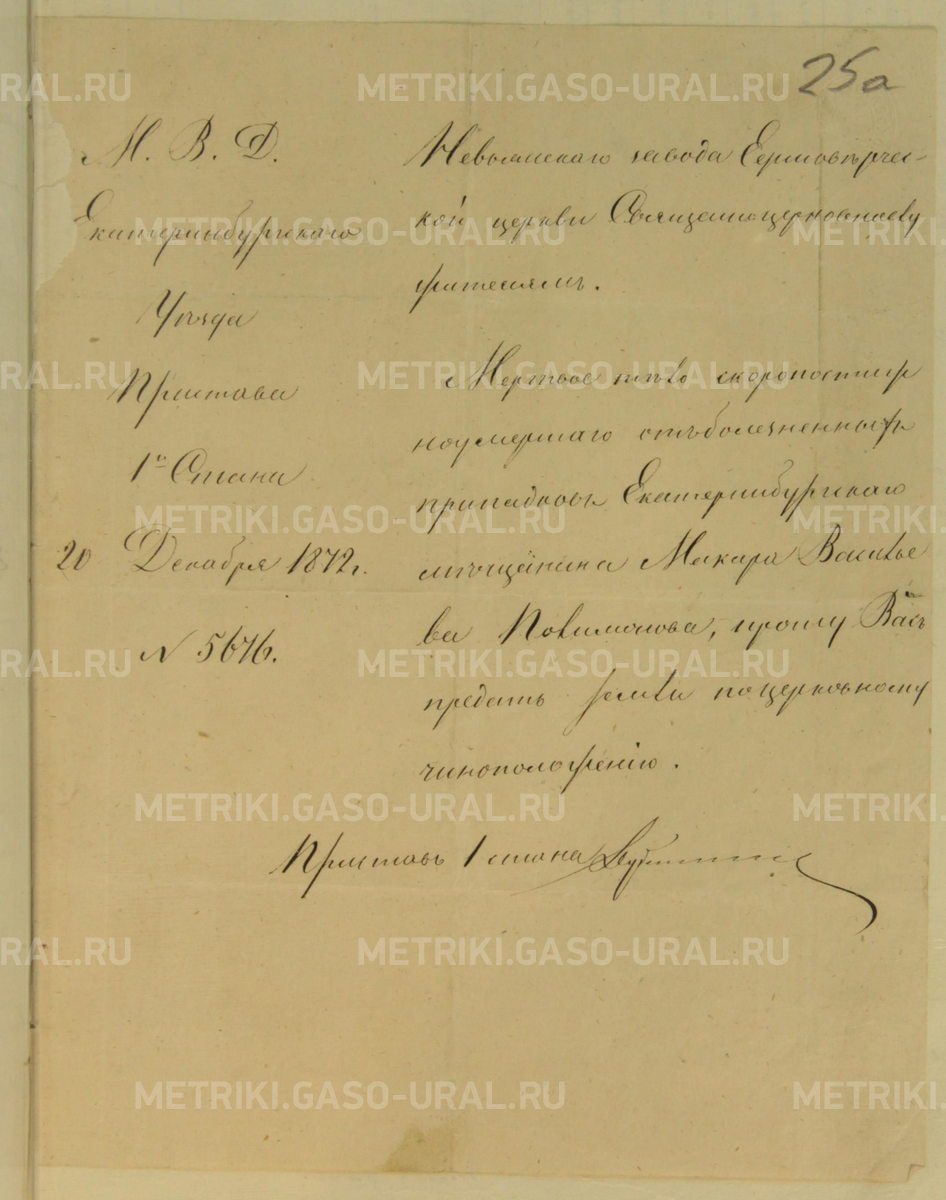 25а
М. В. Д.
Екатеринбургскаго
Уѣзда
Пристава
1го Стана
20 Декабря 1872 г.
N 5676.
Невьянскаго завода Единовѣрчес-
кой церкви Священноцерковнослу
жителямъ.
Мертвое тѣло скоропостиж
ноумершаго отъ болезненныхъ
припадковъ Екатеринбургскаго
мѣщанина Макара Василье
ва прошу Васъ
предать земли по церковному
чиноположенію.
Приставъ 1 стана
METRIKI.GASO-URAL.RU